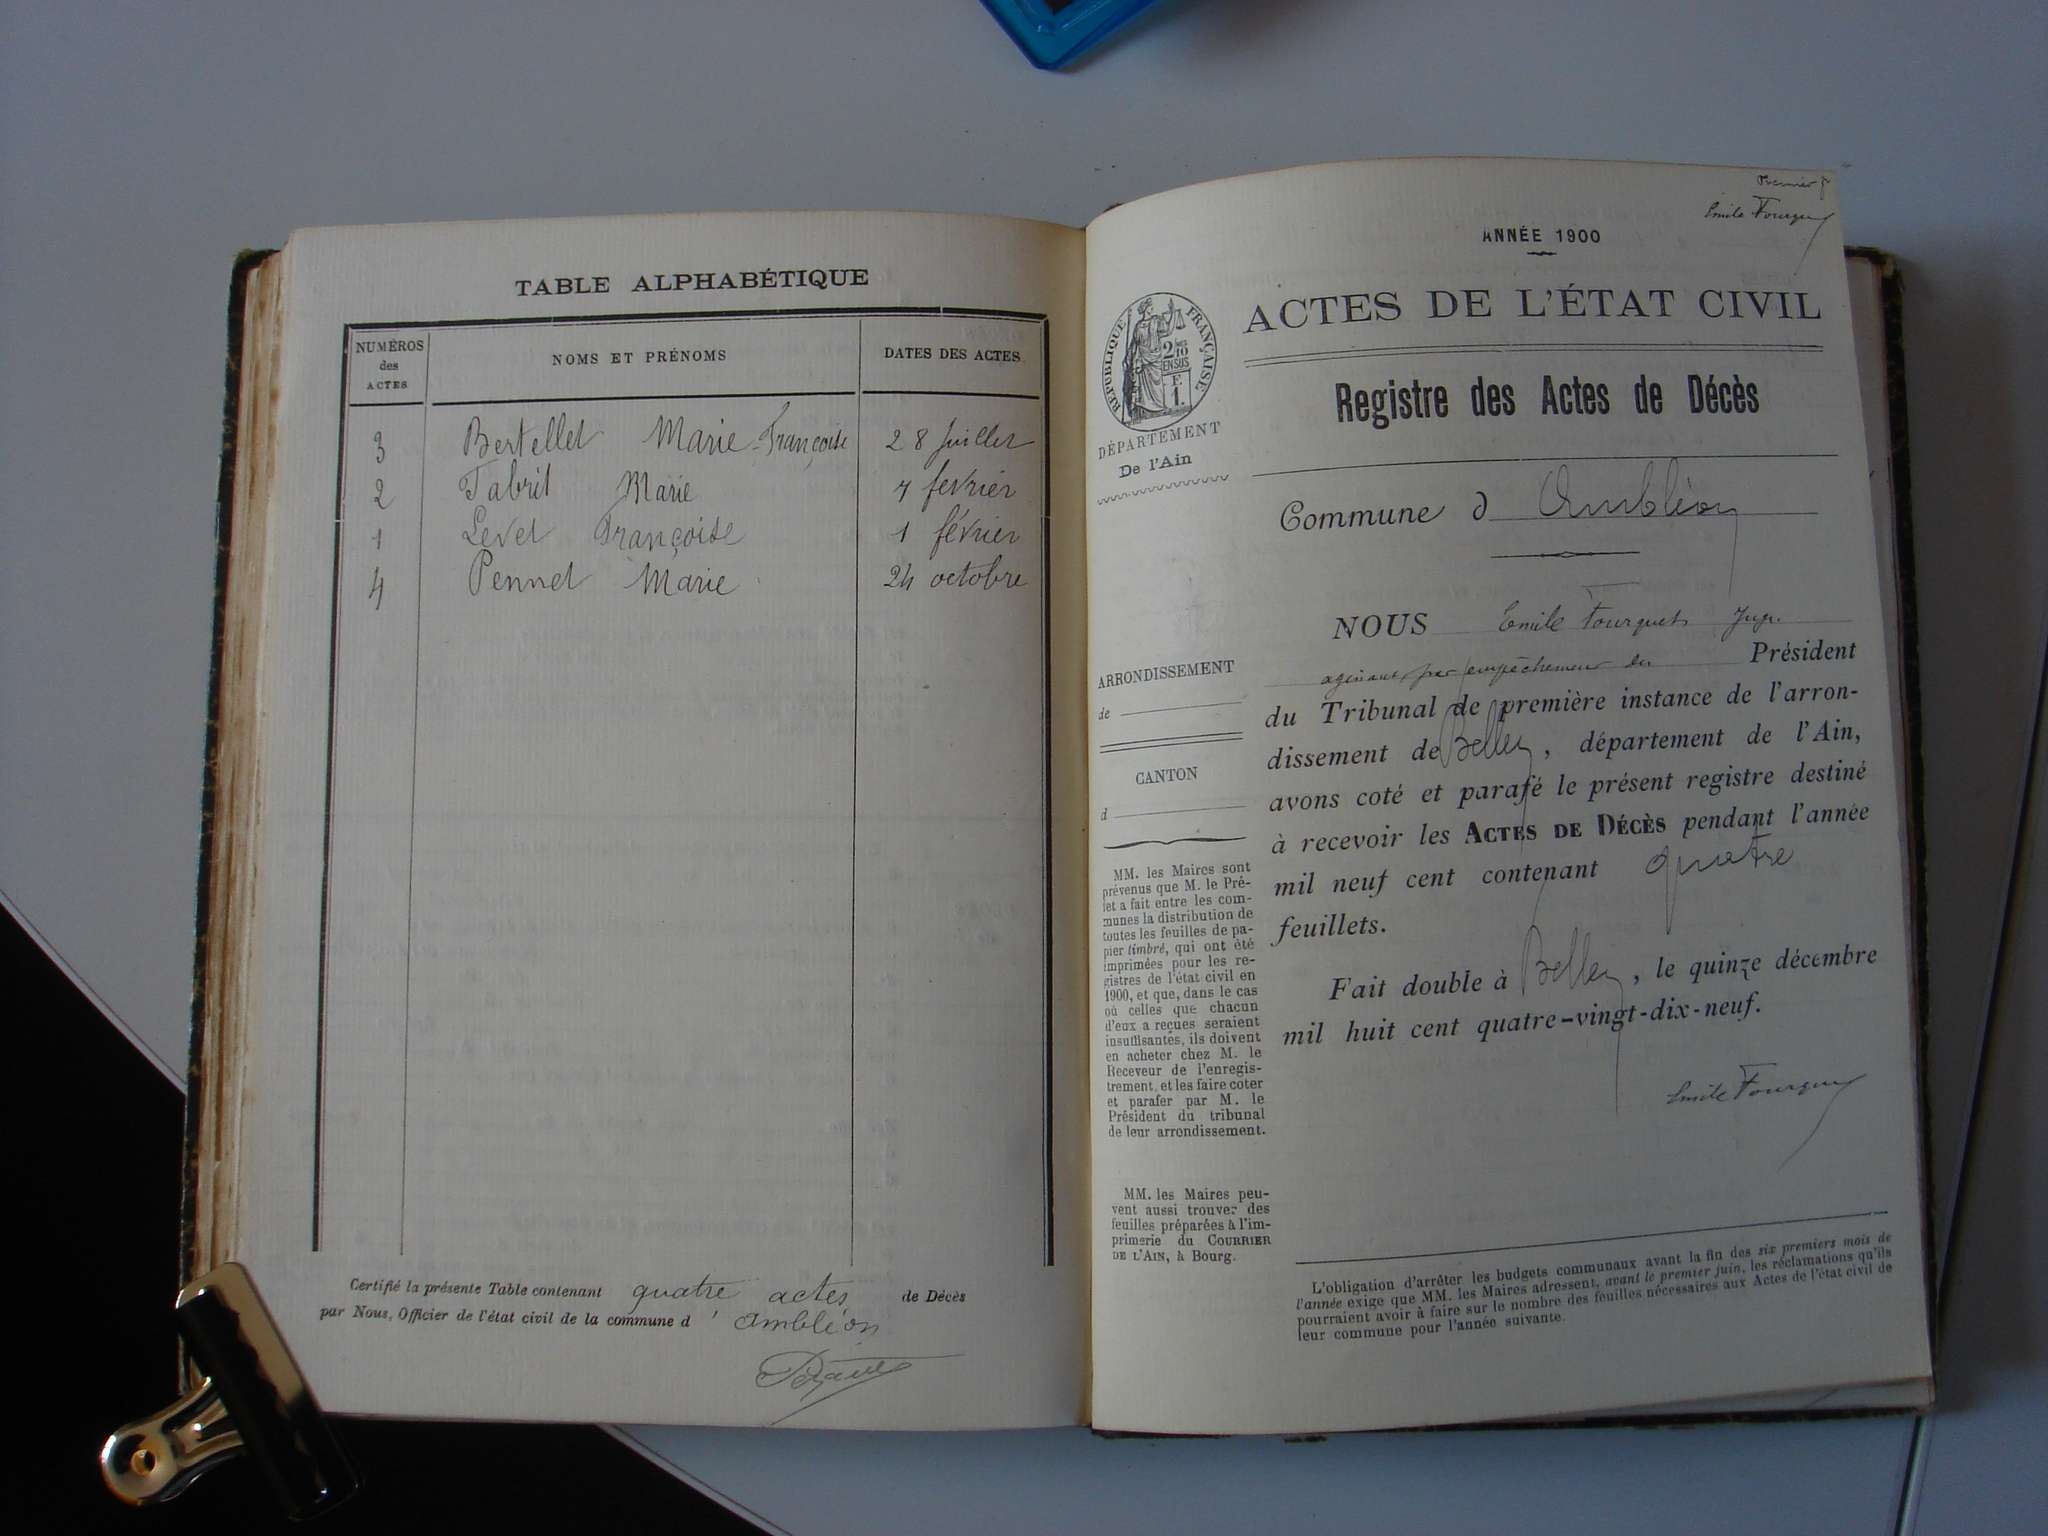 TABLE ALPHABÉTIQUE
NUMÉROS des ACTES
NOMS ET PRÉNOMS
DATES DES ACTES
3 Bertellet Marie-Françoise 28 Juillet
2 Fabrit Marie 7 fevrier
1 Levet Françoise 1 février
4 Pennet Marie 24 octobre
Certifié la présente Table contenant quatre actes de Décès
par Nous, Officier de l'état civil de la commune d' Ambléon
Premier
Emile Fourquet
ANNÉE 1900
RÉPUBLIQUE FRANÇAISE
ACTES DE L'ÉTAT CIVIL
Registre des Actes de Décès
DÉPARTEMENT
De l'Ain
Commune d Ambléon
NOUS Emile Fourquet Juge
agissant par empêchement du Président
du Tribunal de première instance de l'arron-
dissement de Belley, département de l'Ain,
avons coté et parafé le présent registre destiné
à recevoir les ACTES DE DÉCÈS pendant l'année
mil neuf cent contenant quatre
feuillets.
Fait double à Belley, le quinze décembre
mil huit cent quatre-vingt-dix-neuf.
Emile Fourquet
ARRONDISSEMENT
de
CANTON
d
MM. les Maires sont
prévenus que M. le Pré-
fet a fait entre les com-
munes la distribution de
toutes les feuilles de pa-
pier timbré, qui ont été
imprimées pour les re-
gistres de l'état civil en
1900, et que, dans le cas
où celles que chacun
d'eux a reçues seraient
insuffisantes, ils doivent
en acheter chez M. le
Receveur de l'enregis-
trement, et les faire coter
et parafer par M. le
Président du tribunal
de leur arrondissement.
MM. les Maires peu-
vent aussi trouver des
feuilles préparées à l'im-
primerie du COURRIER
DE L'AIN, à Bourg.
L'obligation d'arrêter les budgets communaux avant la fin des six premiers mois de
l'année exige que MM. les Maires adressent, avant le premier juin, les réclamations qu'ils
pourraient avoir à faire sur le nombre des feuilles nécessaires aux Actes de l'état civil de
leur commune pour l'année suivante.